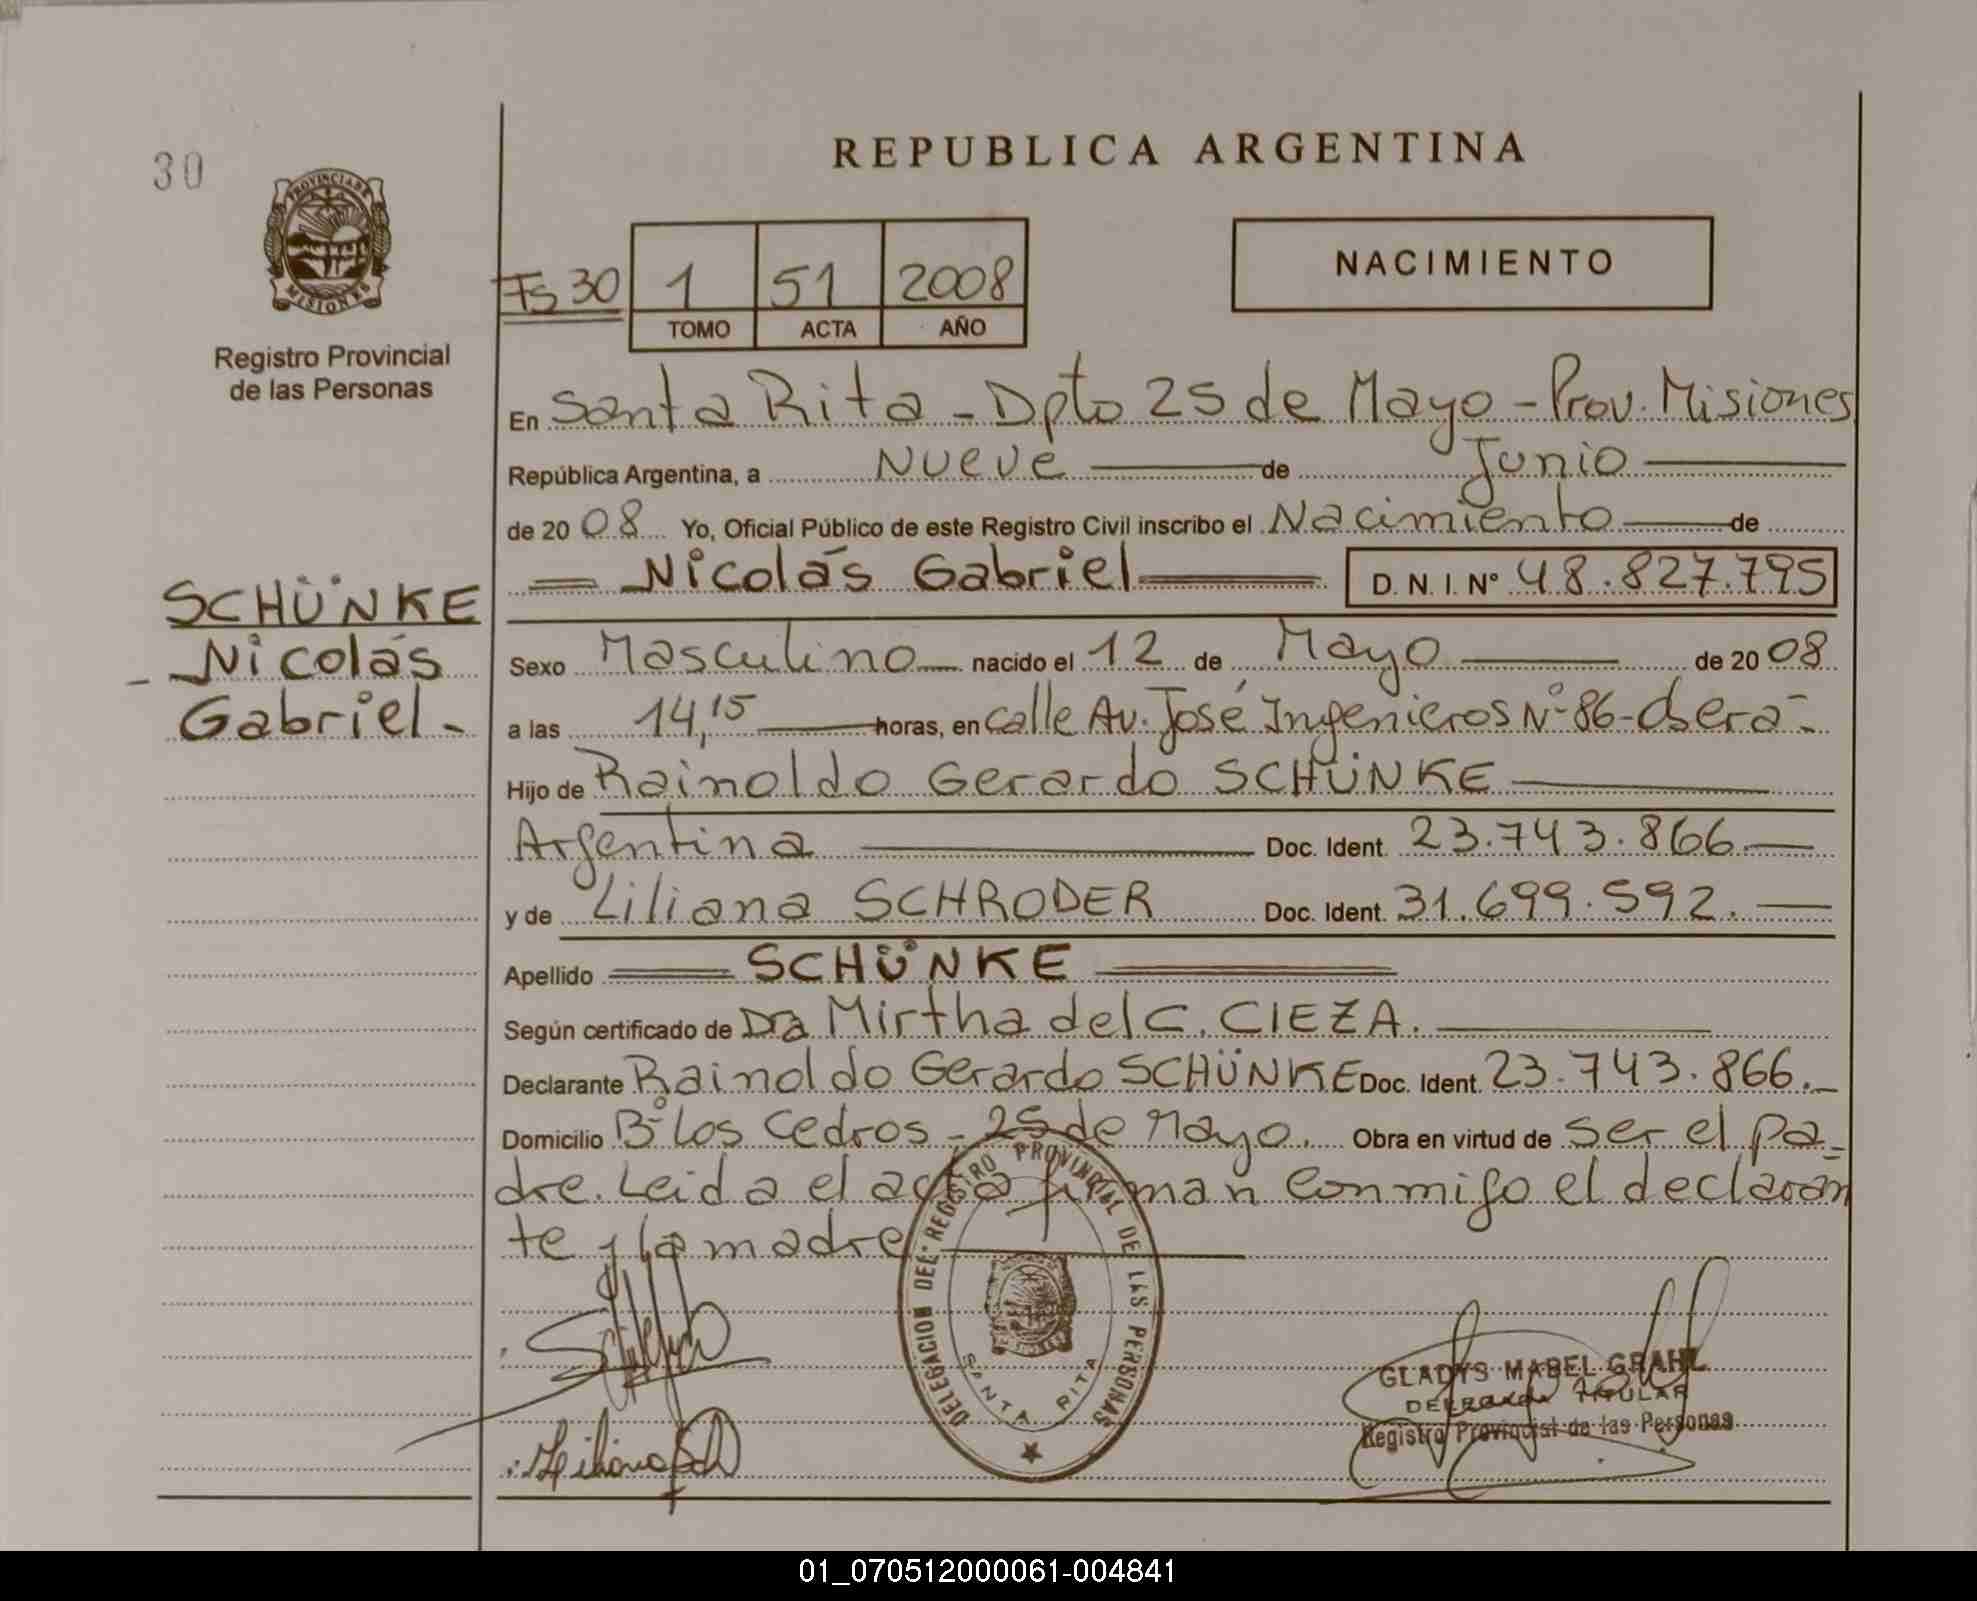 30
PROVINCIA DE MISIONES
Registro Provincial
de las Personas
REPUBLICA ARGENTINA
NACIMIENTO
Fs 30 1 51 2008
TOMO ACTA AÑO
En Santa Rita - Dpto 25 de Mayo - Prov. Misiones
República Argentina, a Nueve de Junio
de 2008 Yo, Oficial Público de este Registro Civil inscribo el Nacimiento de
Nicolás Gabriel D. N. I. N° 48.827.795
SCHÜNKE
Nicolás
Gabriel.-
Sexo Masculino nacido el 12 de Mayo de 2008
a las 14,15 horas, en calle Av. José Ingenieros N° 86-Oberá-
Hijo de Rainoldo Gerardo SCHÜNKE
Argentina Doc. Ident. 23.743.866.
y de Liliana SCHRODER Doc. Ident. 31.699.592.
Apellido SCHÜNKE
Según certificado de Dra Mirtha del C. CIEZA.
Declarante Rainoldo Gerardo SCHÜNKE Doc. Ident. 23.743.866.
Domicilio B° Los Cedros - 25 de Mayo. Obra en virtud de ser el pa-
dre. Leida el acta firman conmigo el declaran
te y la madre
DELEGACION DEL REGISTRO PROVINCIAL DE LAS PERSONAS
SANTA RITA
GLADYS MABEL GRAHL
DELEGADA TITULAR
Registro Provincial de las Personas
01_070512000061-004841